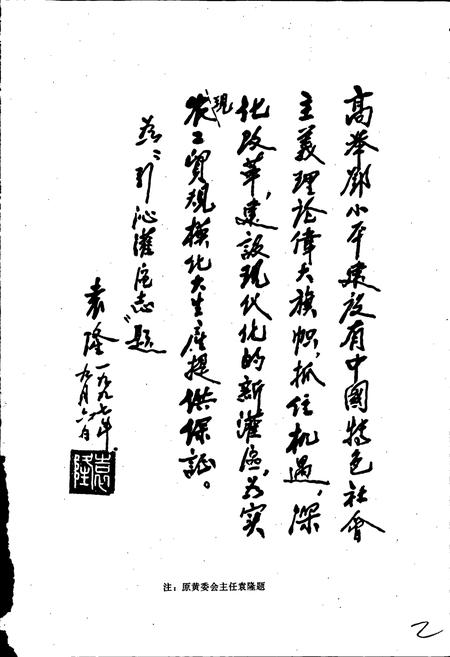 高举邓小平建设有中國特色社會
主義理论偉大旗帜，抓住机遇，深
化改革，建設现代化的新灌區，为实
现农工贸规模化大生産提供保証。
为“引沁灌区志”题
袁隆 一九九七年
九月六日
袁隆
注：原黄委会主任袁隆题
乙